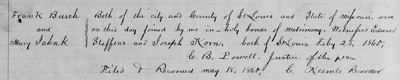 Frank Busch Both of the city and County of St Louis and State of Missouri, were
and on this day joined by me in holy bonds of matrimony. Witnesses Edward
Mary Jahnk Steffens and Joseph Korn, both of St Louis Feby 23, 1860,
C. B. Lowell, Justice of the peace
Filed & Recorded May 18, 1860, C. Keemle Recorder